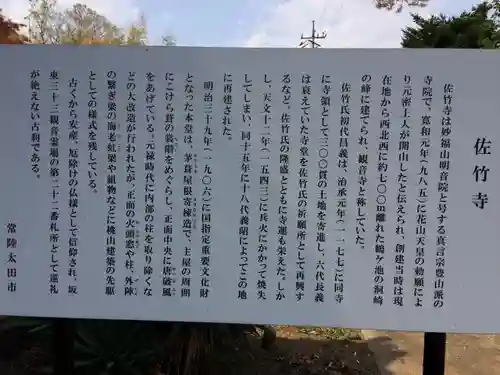 佐竹寺
佐竹寺は妙福山明音院と号する真言宗豊山派の
寺院で、寛和元年(九八五)に花山天皇の勅願によ
り元密上人が開山したと伝えられ、創建当時は現
在地から西北西に約七〇〇m離れた鶴ケ池の洞崎
の峰に建てられ、観音寺と称していた。
佐竹氏初代昌義は、治承元年(一一七七)に同寺
に寺領として三〇〇貫の土地を寄進し、六代長義
は衰えていた寺堂を佐竹氏の祈願所として再興す
るなど、佐竹氏の隆盛とともに寺運も栄えた。しか
し、天文十二年(一五四三)に兵火にかかって焼失
してしまい、同十五年に十八代義昭によってこの地
に再建された。
明治三十九年(一九〇六)に国指定重要文化財
となった本堂は、茅葺屋根寄棟造で、主屋の周囲
にこけら葺の裳階をめぐらし、正面中央に唐破風
をあげている。元禄時代に内部の柱を取り除くな
どの大改造が行われたが、正面の火頭窓や柱、外陣
の繋ぎ梁の海老虹梁や組物などに桃山建築の先駆
としての様式を残している。
古くから安産、厄除けの仏様として信仰され、坂
東三十三観音霊場の第二十二番札所として巡礼
が絶えない古刹である。
常陸太田市